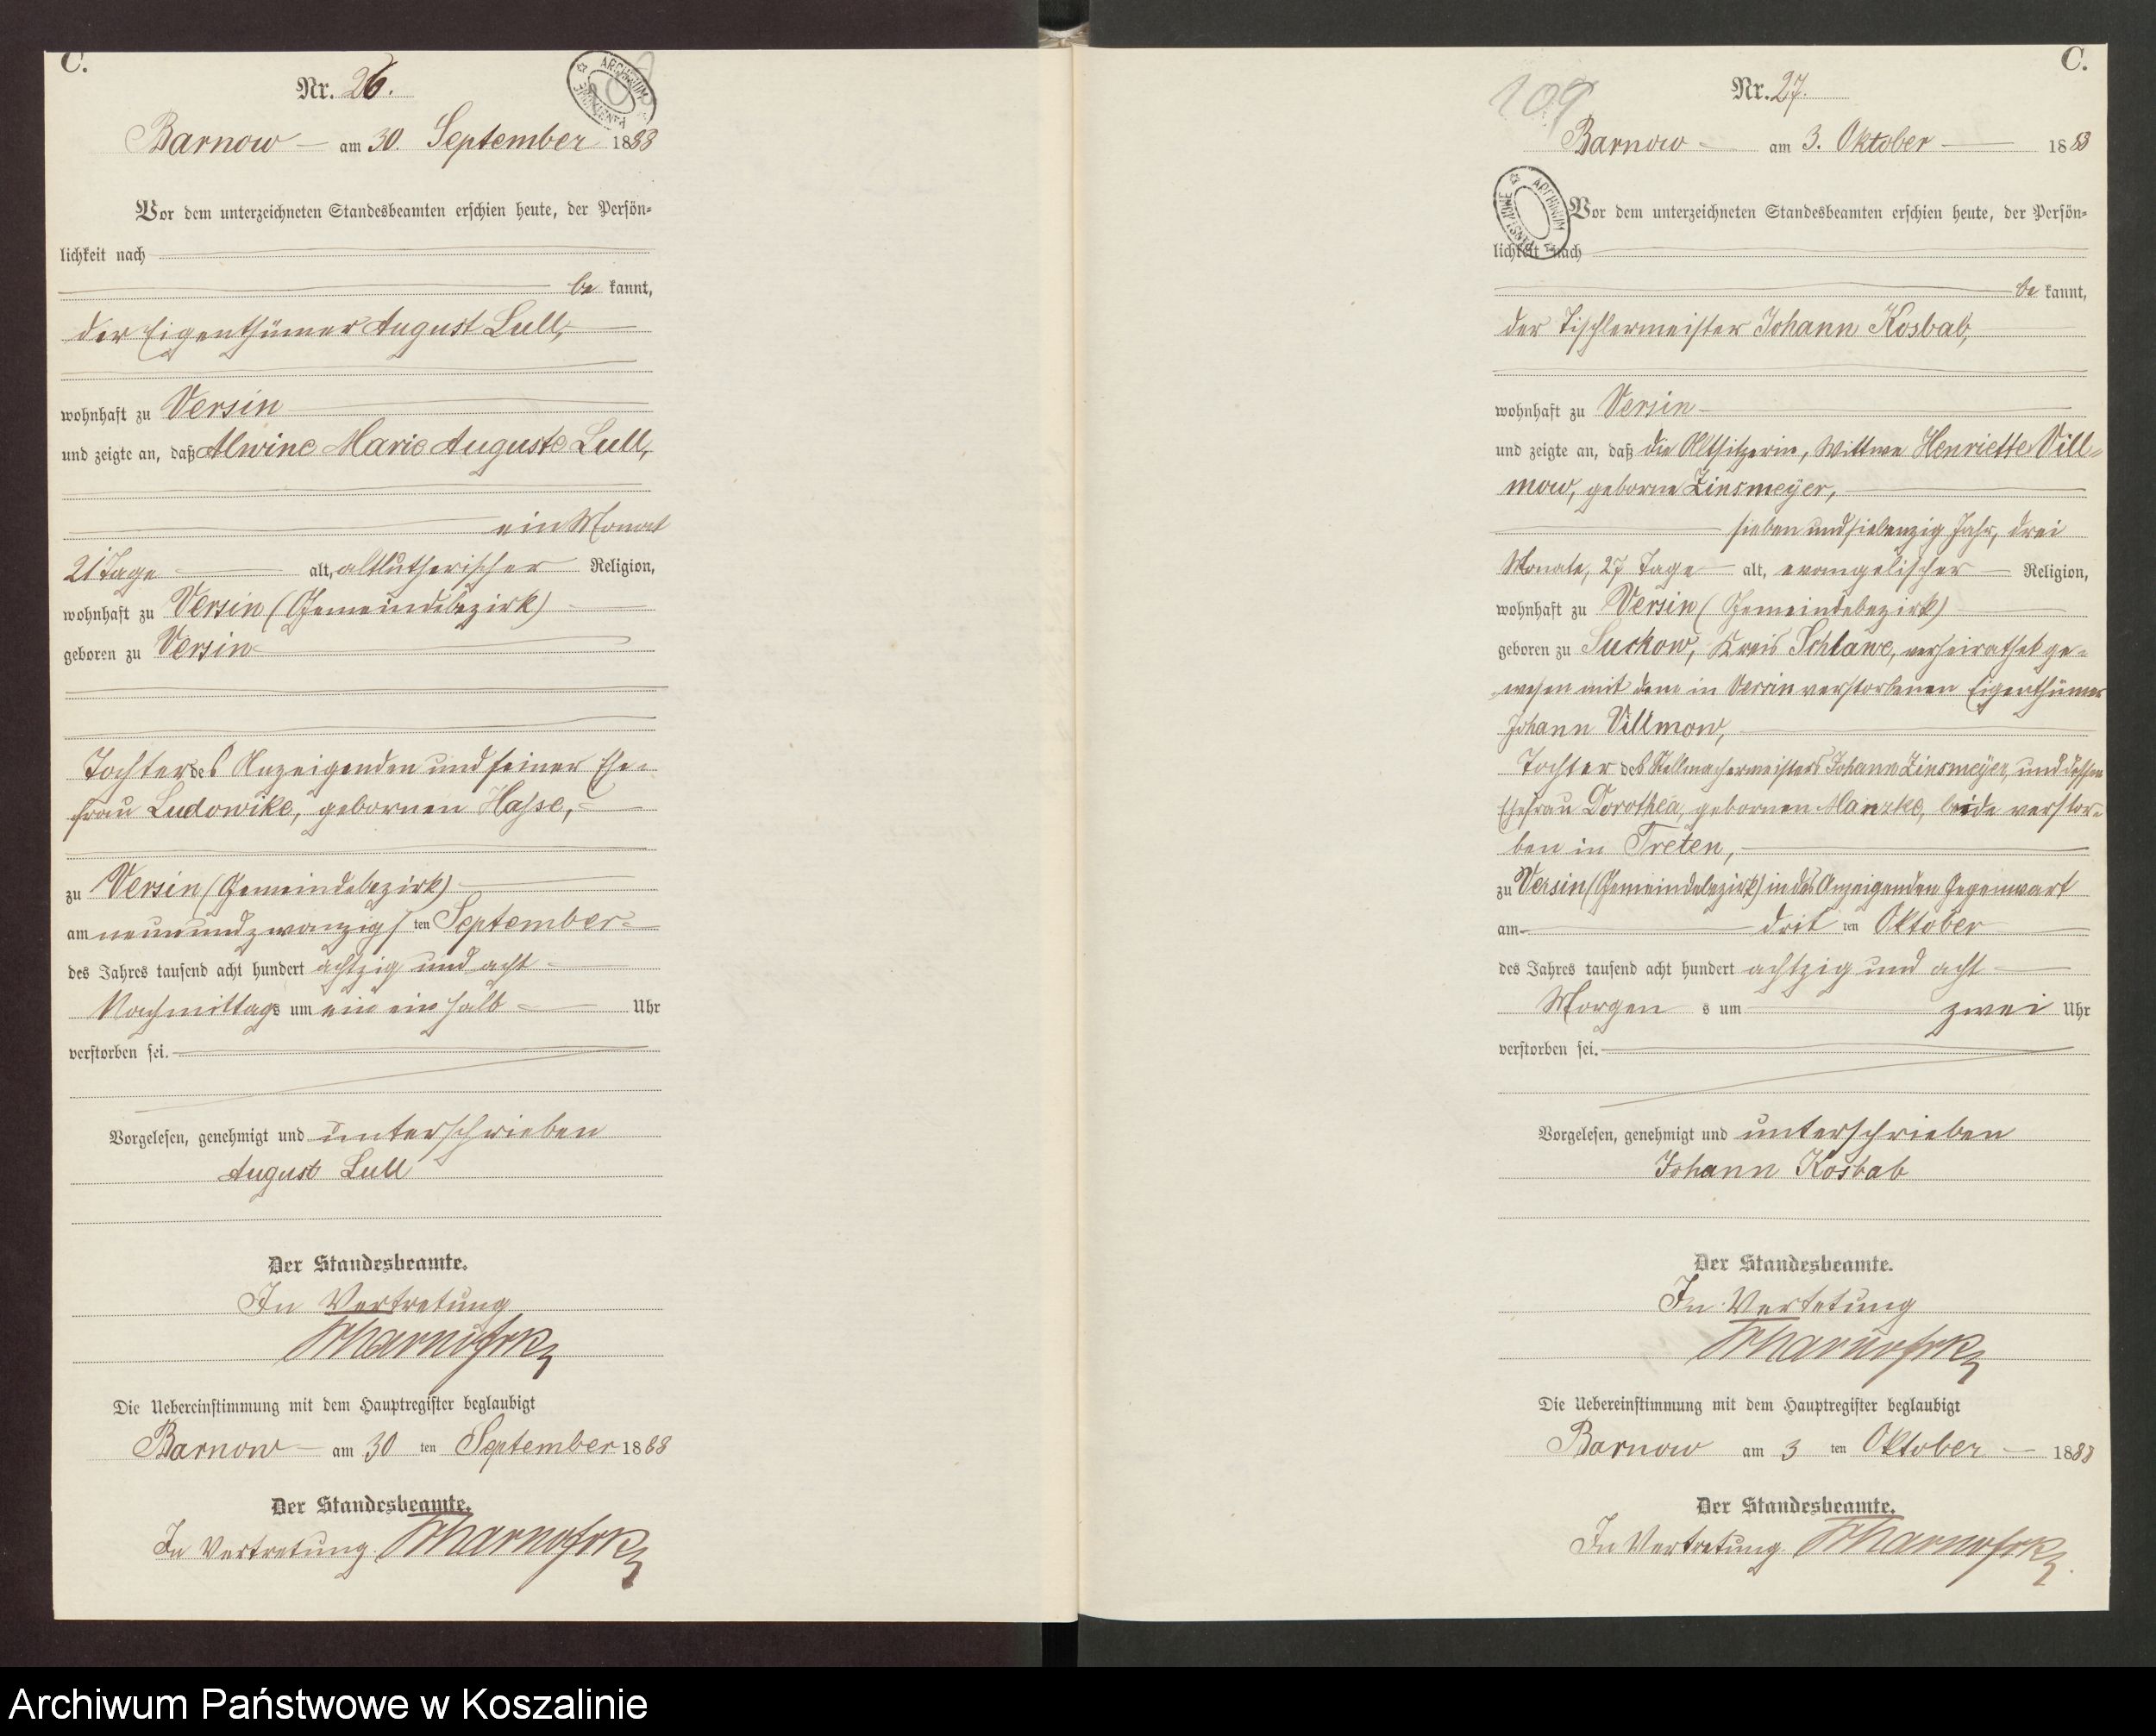 C.
Nr. 26.
Barnow am 30. September 1888
Vor dem unterzeichneten Standesbeamten erschien heute, der Persön=
lichkeit nach
be kannt,
der Eigenthümer August Lull,
wohnhaft zu Versin
und zeigte an, daß Alwine Marie Auguste Lull,
ein Monat
21 Tage alt, altlutherischer Religion,
wohnhaft zu Versin (Gemeindebezirk)
geboren zu Versin
Tochter des Anzeigenden und seiner Ehe=
frau Ludowike, gebornen Hasse,
zu Versin (Gemeindebezirk)
am neunundzwanzigsten September
des Jahres tausend acht hundert achtzig und acht
Nachmittags um ein ein halb Uhr
verstorben sei.
Vorgelesen, genehmigt und unterschrieben
August Lull
Der Standesbeamte.
In Vertretung
Die Uebereinstimmung mit dem Hauptregister beglaubigt
Barnow am 30 ten September 1888
Der Standesbeamte.
In Vertretung.
C.
109
Nr. 27.
Barnow am 3. Oktober 1888
ARCHIWUM
Vor dem unterzeichneten Standesbeamten erschien heute, der Persön=
lichkeit nach
be kannt,
der Tischlermeister Johann Kosbab,
wohnhaft zu Versin
und zeigte an, daß die Altsitzerin, Wittwe Henriette Vill=
mow, geborne Zinsmeÿer,
sieben und siebenzig Jahr, drei
Monate, 27 Tage alt, evangelischer Religion,
wohnhaft zu Versin (Gemeindebezirk)
geboren zu Suckow, Kreis Schlawe, verheirathet ge=
wesen mit dem in Versin verstorbenen Eigenthümer
Johann Villmow,
Tochter des Stellmachermeisters Johann Zinsmeÿer, und dessen
Ehefrau Dorothea, gebornen Manzke, beide verstor=
ben in Treten,
zu Versin (Gemeindebezirk) in des Anzeigenden Gegenwart
am dritten Oktober
des Jahres tausend acht hundert achtzig und acht
Morgens um zwei Uhr
verstorben sei.
Vorgelesen, genehmigt und unterschrieben
Johann Kosbab
Der Standesbeamte.
In Vertetung
Die Uebereinstimmung mit dem Hauptregister beglaubigt
Barnow am 3 ten Oktober 1888
Der Standesbeamte.
In Vertretung.
Archiwum Państwowe w Koszalinie